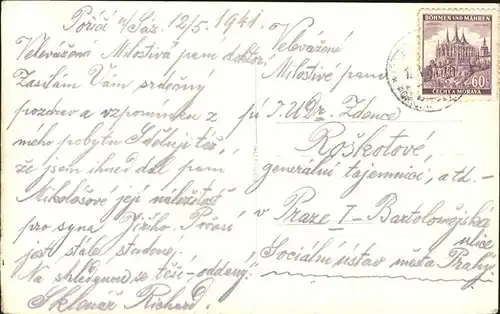 Poříčí n/Sáz. 12/5. 1941.
Velevážená Milostivá paní doktor!
Zasílám Vám srdečný
pozdrav a vzpomínku z
mého pobytu. Sděluji též,
že jsem ihned dal paní
Mikolášové její náležitost
pro syna Jiřího. Počasí
jest stále studené.
Na shledanou se těší - oddaný:
Sklenář Richard.
Velevážené
Milostivé paní
pí J.U.Dr. Zdence
Roškotové,
generální tajemnici, atd. -
v Praze I - Bartolomějská
ulice
Sociální ústav města Prahy
BÖHMEN UND MÄHREN
60
ČECHY A MORAVA